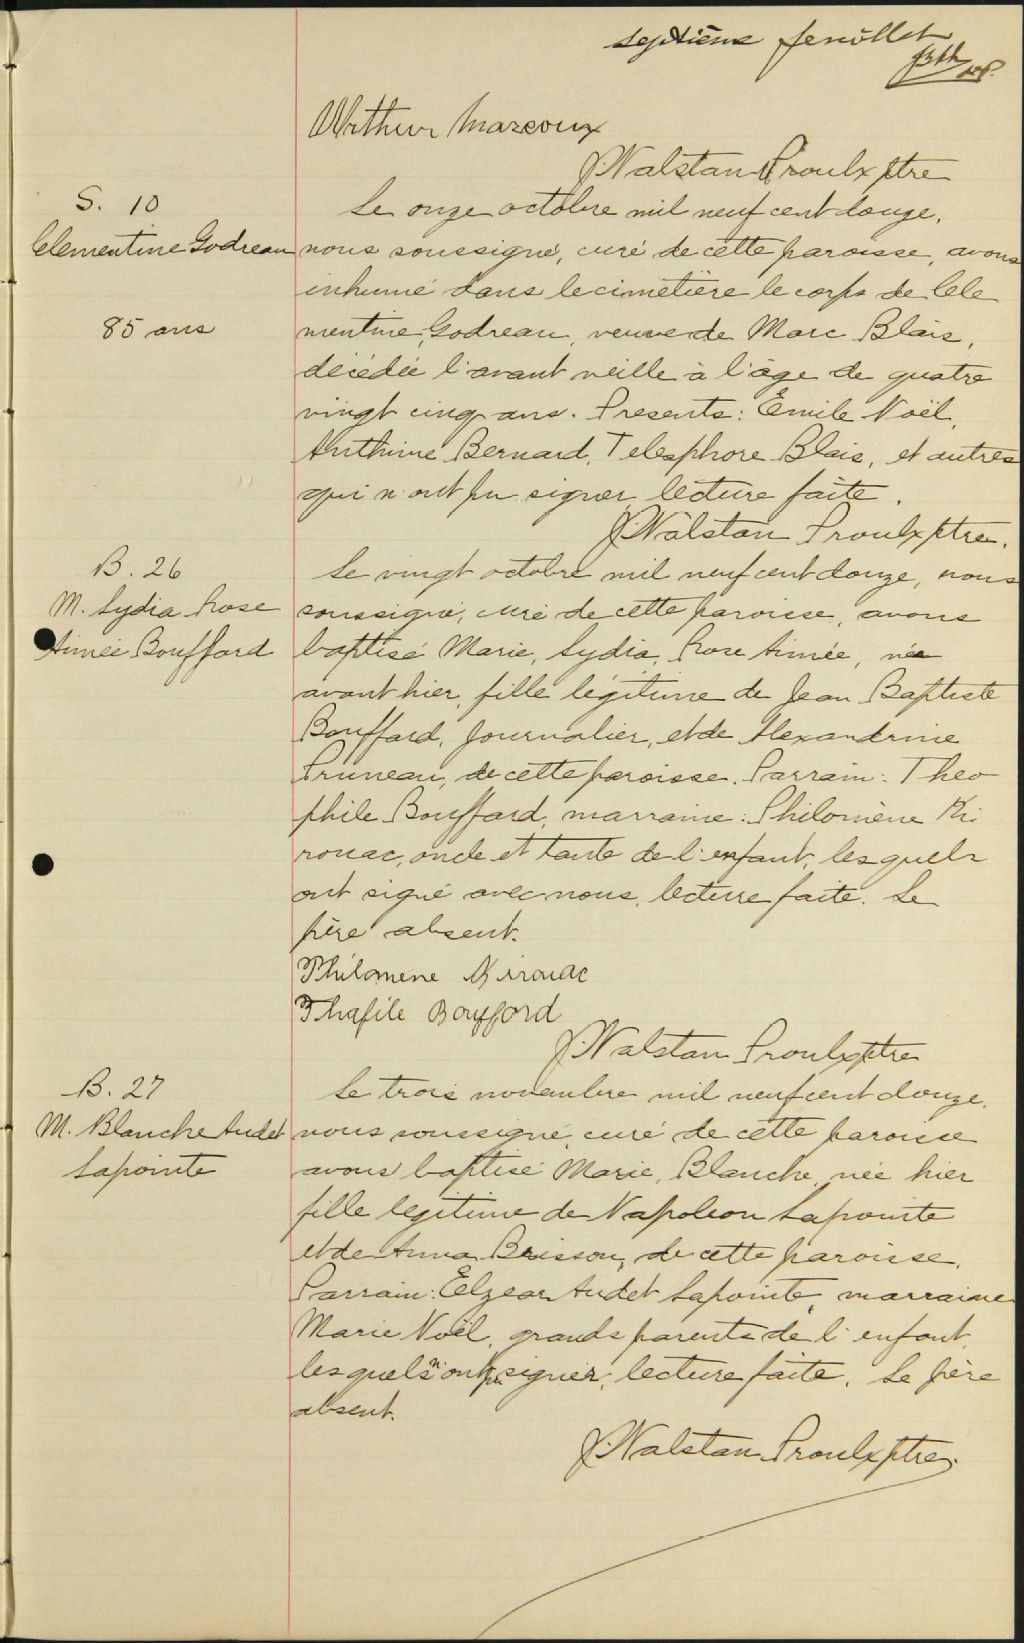 septième feuillet
Arthur Marcoux
J. Walstan Proulx ptre
S. 10
Clementine Godreau
85 ans
Le onze octobre mil neuf cent douze,
nous soussigné, curé de cette paroisse, avons
inhumé dans le cimetière le corps de Cle
mentine Godreau, veuve de Marc Blais,
décédée l'avant veille à l'âge de quatre
vingt cinq ans. Presents: Émile Noël,
Anthime Bernard, Telesphore Blais, et autres
qui n'ont pu signer lecture faite.
J. Walstan Proulx ptre.
B. 26
M. Lydia Rose
Aimée Bouffard
Le vingt octobre mil neuf cent douze, nous
soussigné, curé de cette paroisse, avons
baptisé Marie, Lydia, Rose Aimée, née
avant hier, fille légitime de Jean Baptiste
Bouffard, journalier, et de Alexandrine
Pruneau, de cette paroisse. Parrain: Theo
phile Bouffard, marraine: Philomène Ki
rouac, oncle et tante de l'enfant, lesquels
ont signé avec nous, lecture faite. Le
père absent.
Philomene Kirouac
Thafile Boufford
J. Walstan Proulx ptre
B. 27
M. Blanche Audet
Lapointe
Le trois novembre mil neuf cent douze,
nous soussigné, curé de cette paroisse
avons baptisé Marie, Blanche, née hier
fille legitime de Napoleon Lapointe
et de Anna Brisson, de cette paroisse.
Parrain: Elzear Audet Lapointe, marraine
Marie Noël, grands parents de l'enfant,
lesquels n'ont pu signer, lecture faite. Le père
absent.
J. Walstan Proulx ptre.